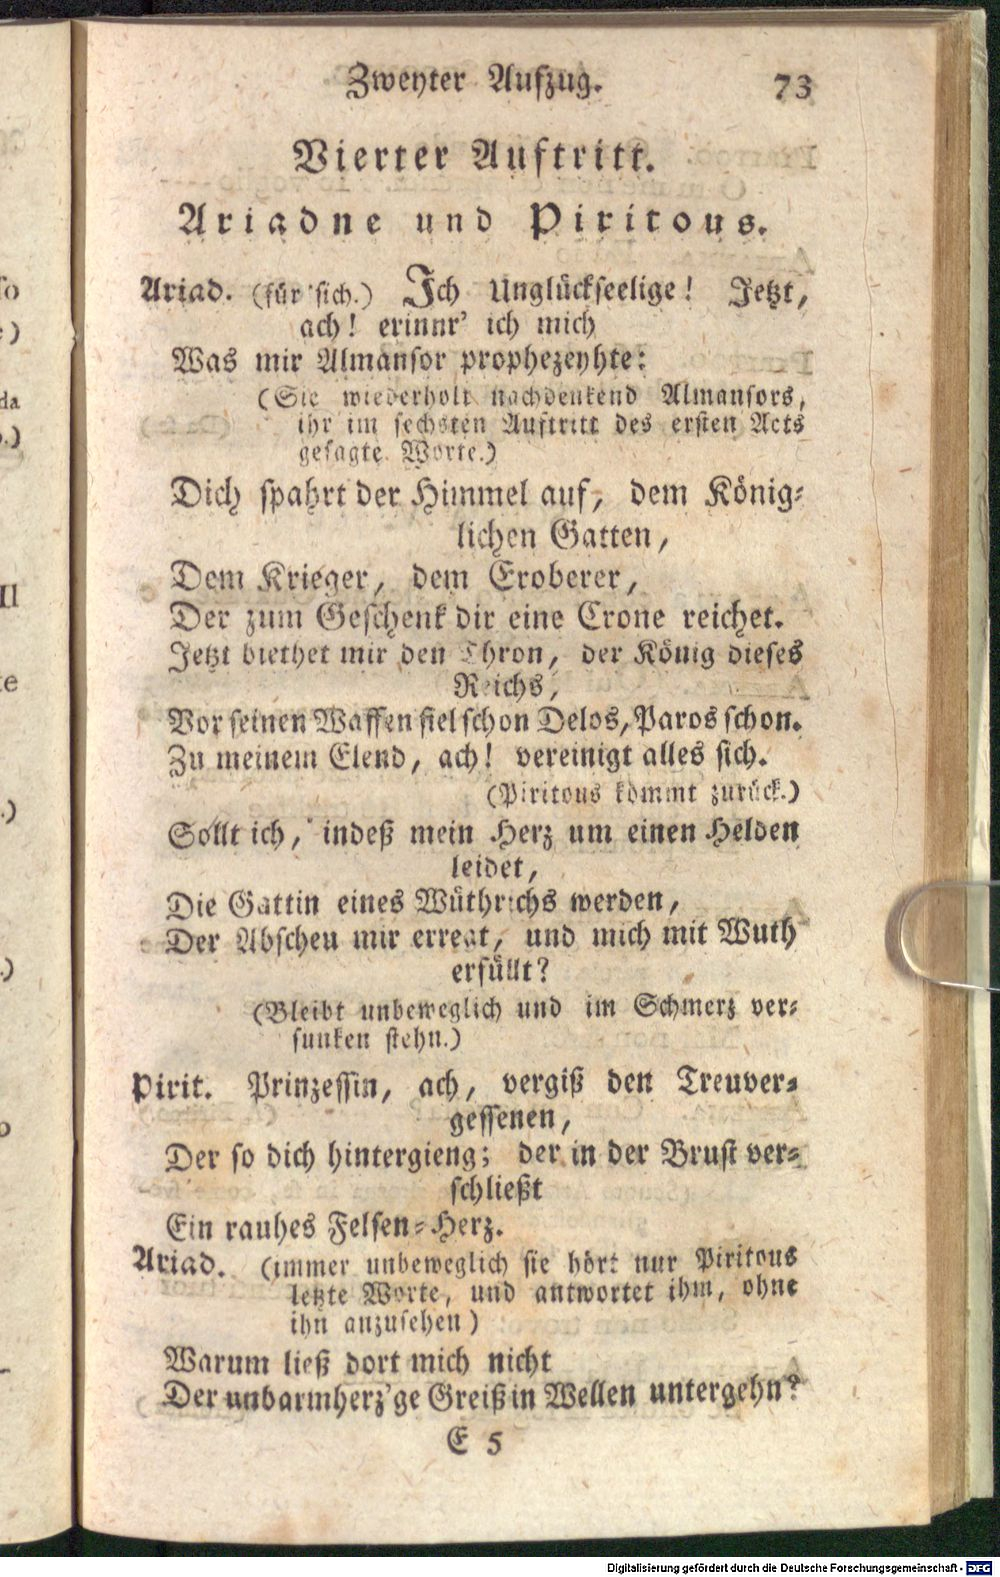 Zweyter Aufzug. 73
Vierter Auftritt.
Ariadne und Piritous.
Ariad. (für sich.) Ich Unglückseelige! Jetzt,
ach! erinnr' ich mich
Was mir Almansor prophezeyhte:
(Sie wiederholt nachdenkend Almansors,
ihr im sechsten Auftritt des ersten Acts
gesagte Worte.)
Dich spahrt der Himmel auf, dem König-
lichen Gatten,
Dem Krieger, dem Eroberer,
Der zum Geschenk dir eine Crone reichet.
Jetzt biethet mir den Thron, der König dieses
Reichs,
Vor seinen Waffen fiel schon Delos, Paros schon.
Zu meinem Elend, ach! vereinigt alles sich.
(Piritous kömmt zurück.)
Sollt ich, indeß mein Herz um einen Helden
leidet,
Die Gattin eines Wüthrichs werden,
Der Abscheu mir erregt, und mich mit Wuth
erfüllt?
(Bleibt unbeweglich und im Schmerz ver-
sunken stehn.)
Pirit. Prinzessin, ach, vergiß den Treuver-
gessenen,
Der so dich hintergieng; der in der Brust ver-
schließt
Ein rauhes Felsen-Herz.
Ariad. (immer unbeweglich sie hört nur Piritous
letzte Worte, und antwortet ihm, ohne
ihn anzusehen)
Warum ließ dort mich nicht
Der unbarmherz'ge Greiß in Wellen untergehn?
E 5
so
e)
da
o.)
II
te
.)
.)
o
Digitalisierung gefördert durch die Deutsche Forschungsgemeinschaft - DFG